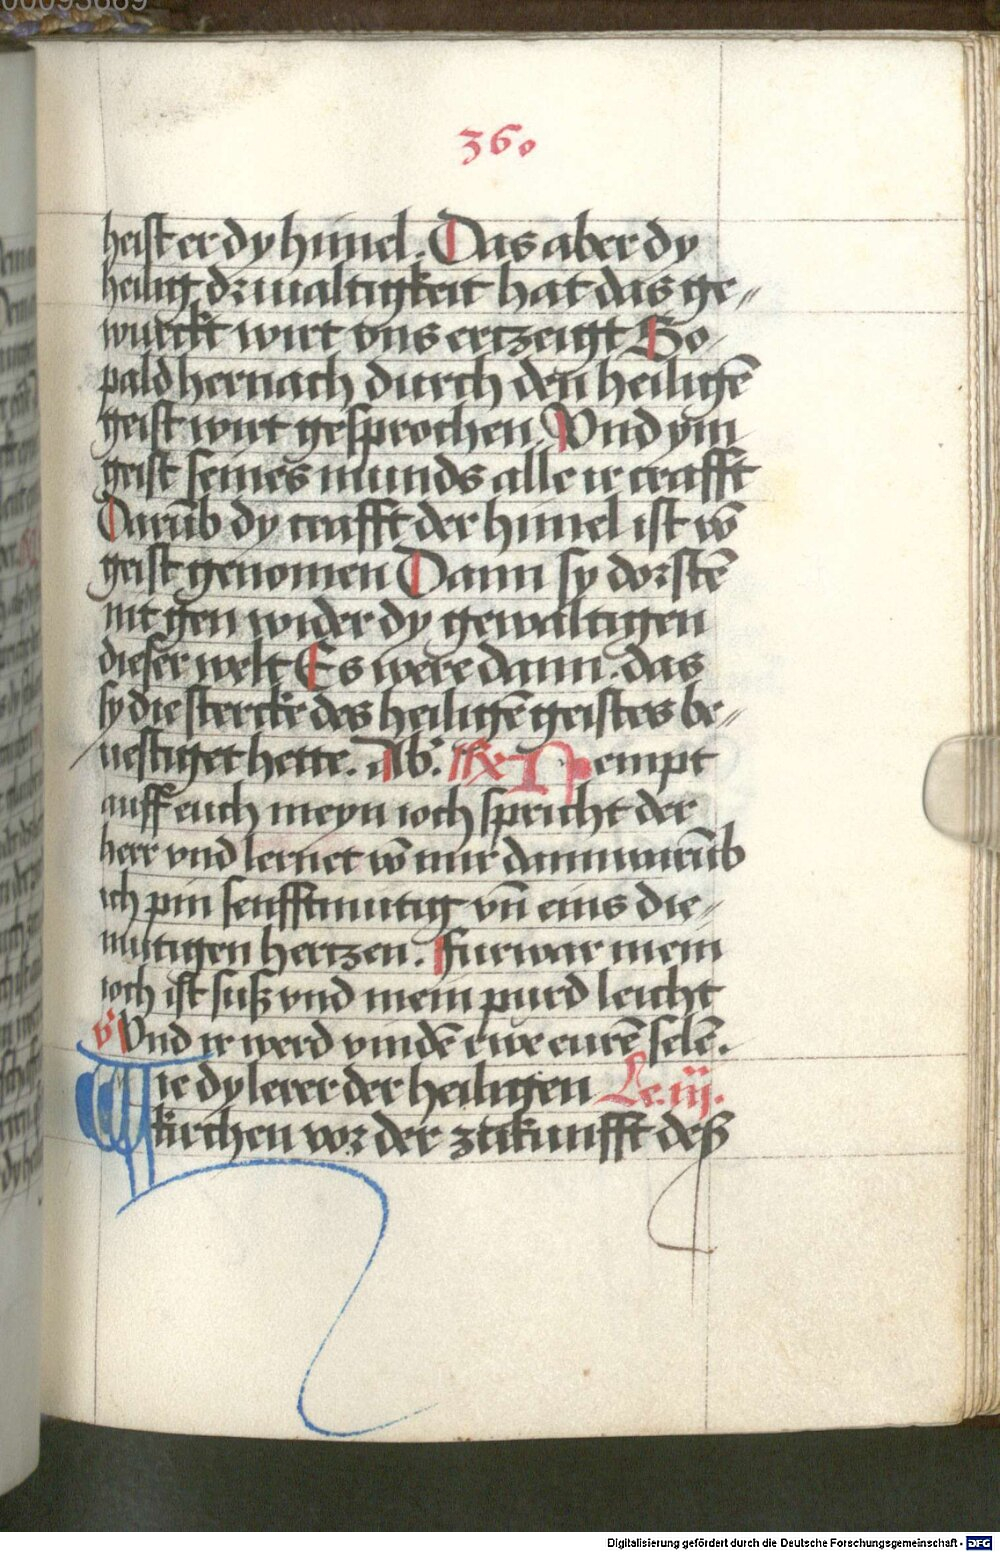 00093689
360
heist er dy himel. Das aber dy
heilig drivaltigkeit hat das ge⸗
wurckt wirt vns ertzeigt So
pald hernach durch den heiligē
geist wirt gesprochen Vnd ym
geist seines munds alle ir crafft
Darūb dy crafft der himel ist vō
geist genomen Dann sy dorstē
nit gen wider dy gewaltigen
dieser welt Es were dann. das
sy die stercke des heiligē geistes be⸗
uestiget hette. Ab. Re Nempt
auff euch meyn ioch spricht der
herr vnd lernet vō mir dann warūb
ich pin senfftmutig vn̄ eins die⸗
mutigen hertzen. Furwar mein
ioch ist suß vnd mein purd leicht
v Vnd ir werd vindē rwe eurē selē.
Die dy lerer der heiligen Le. iij.
kirchen vor der zukunfft deß
Digitalisierung gefördert durch die Deutsche Forschungsgemeinschaft - DFG